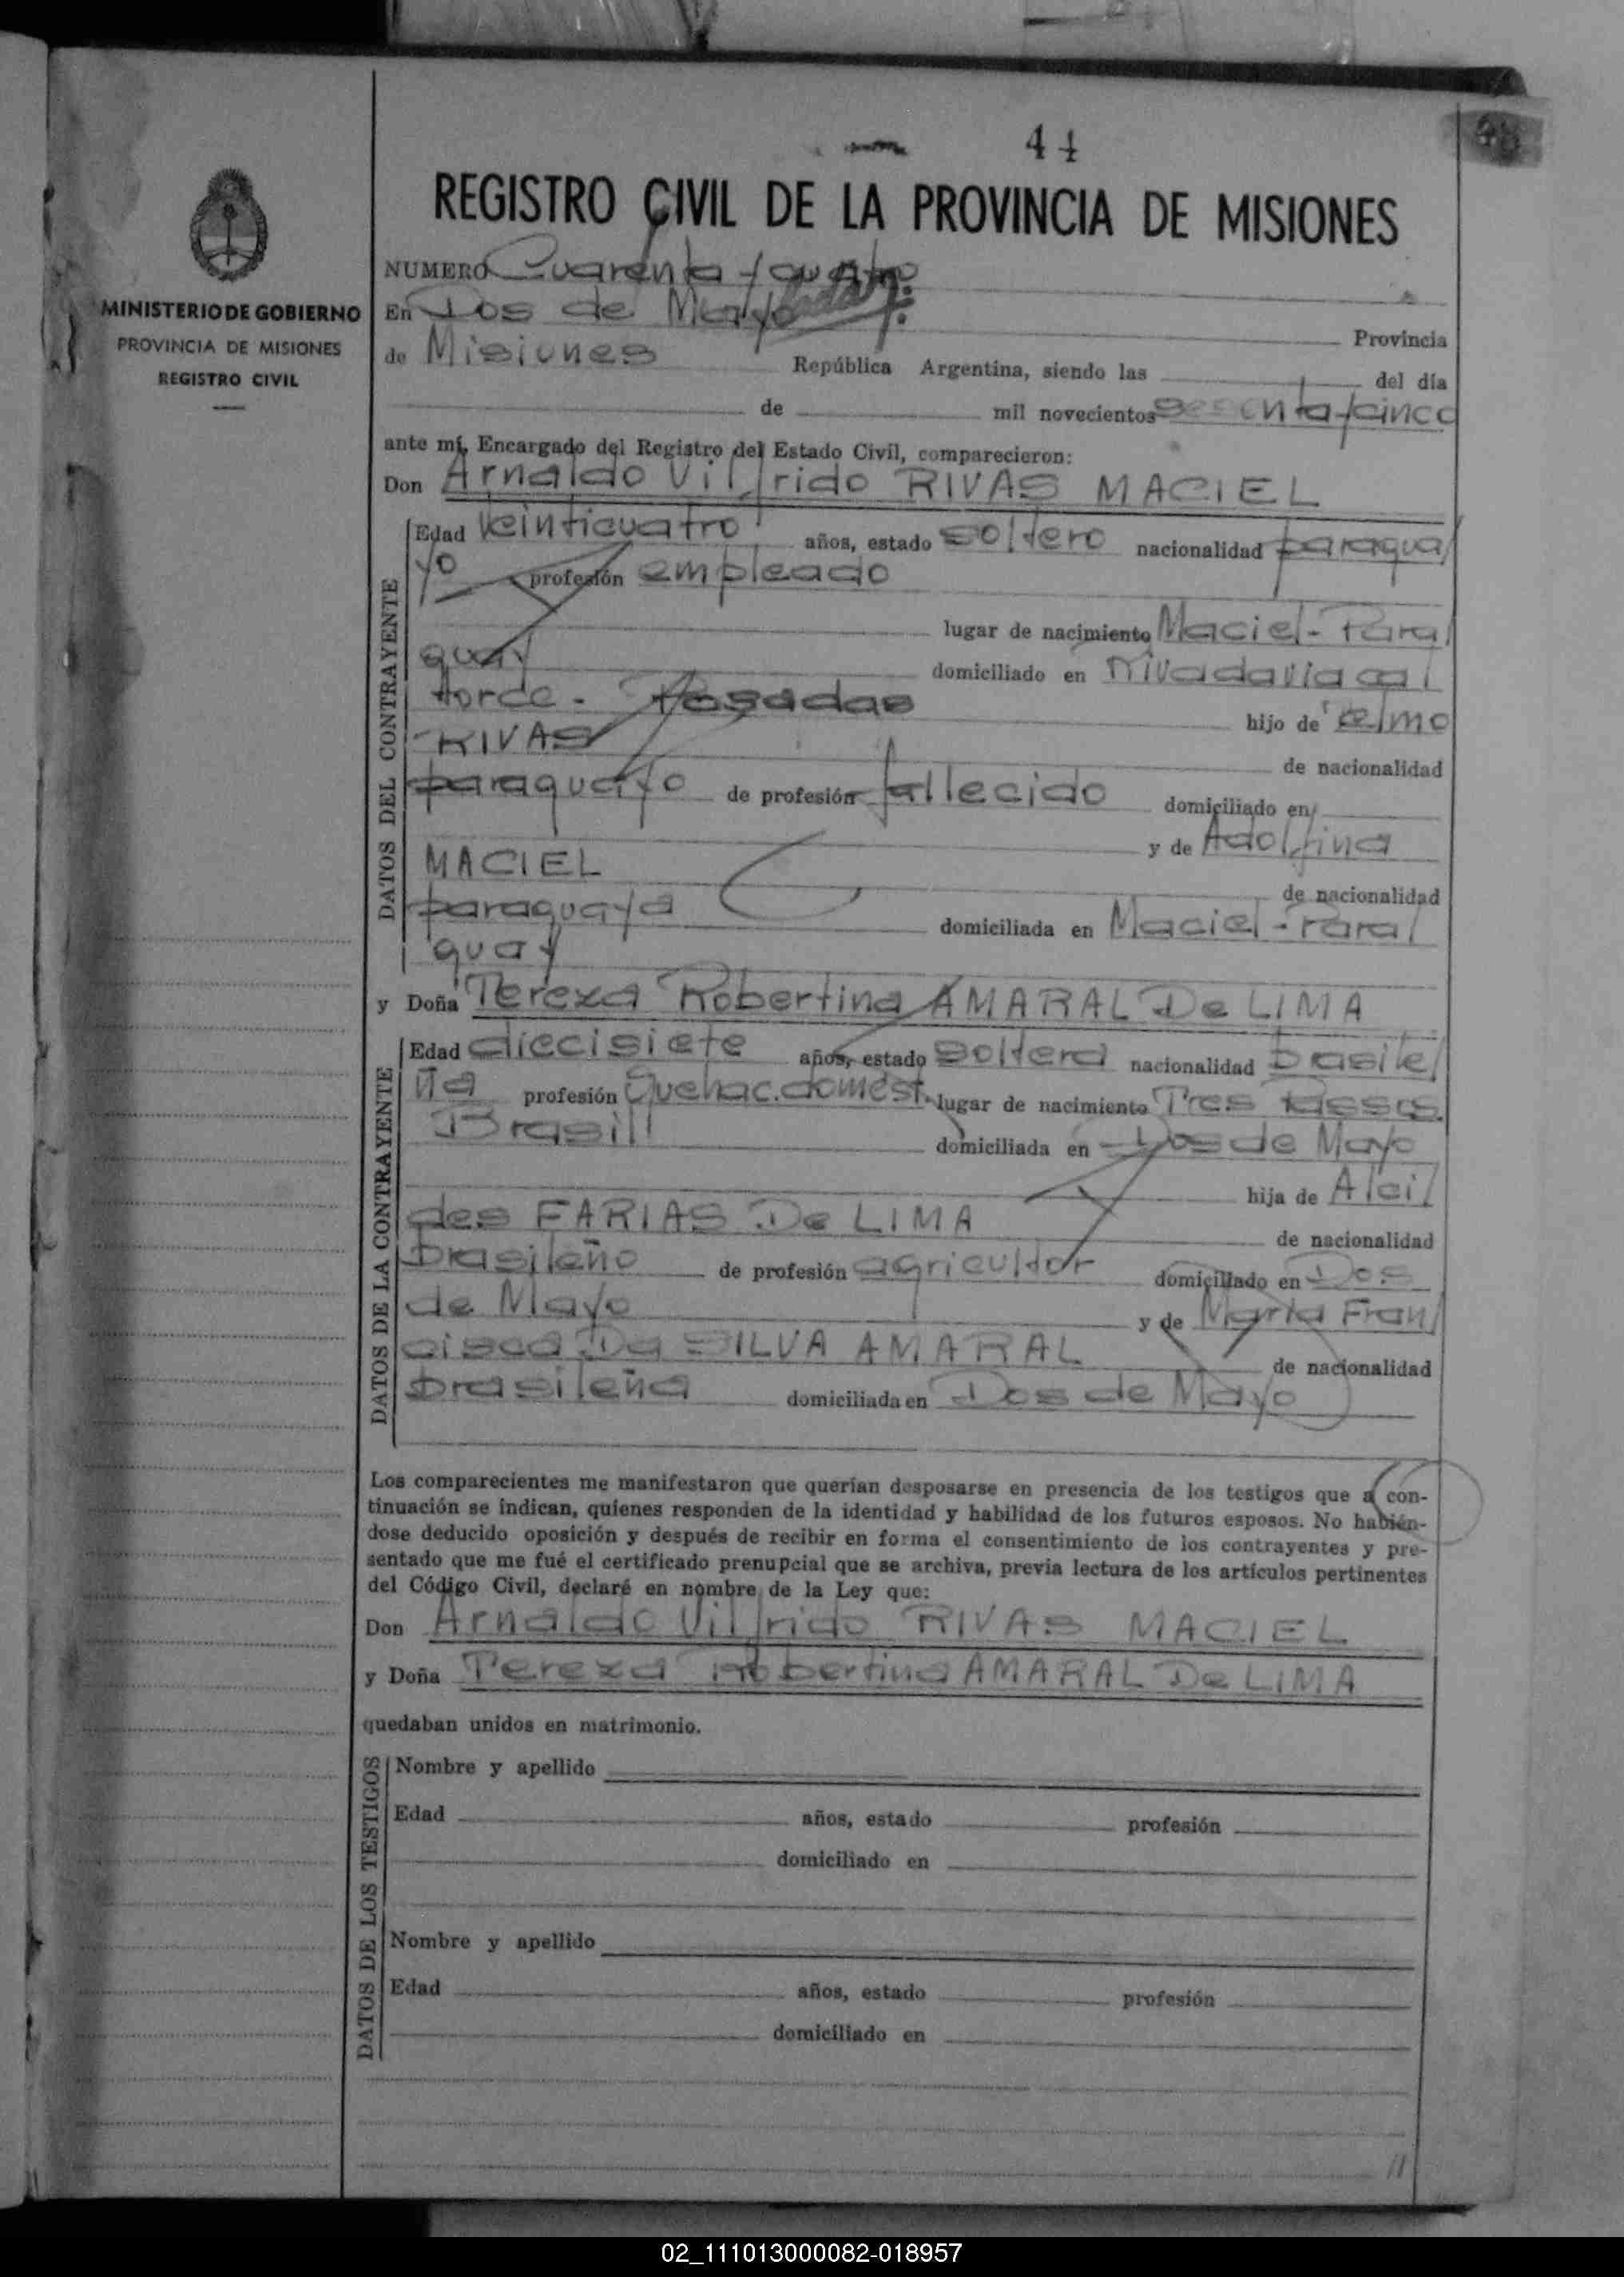 44
REGISTRO CIVIL DE LA PROVINCIA DE MISIONES
MINISTERIO DE GOBIERNO
PROVINCIA DE MISIONES
REGISTRO CIVIL
NUMERO Cuarenta y cuatro
En Dos de Mayo Provincia
de Misiones República Argentina, siendo las del día
de mil novecientos sesenta y cinco
ante mí, Encargado del Registro del Estado Civil, comparecieron:
Don Arnaldo Vilfrido RIVAS MACIEL
DATOS DEL CONTRAYENTE
Edad veinticuatro años, estado soltero nacionalidad paragua
yo profesión empleado
lugar de nacimiento Maciel - Para
guay domiciliado en Rivadavia ca
torce - Posadas hijo de Telmo
RIVAS de nacionalidad
paraguayo de profesión fallecido domiciliado en
y de Adolfina
MACIEL de nacionalidad
paraguaya domiciliada en Maciel - Para
guay
y Doña Tereza Robertina AMARAL De LIMA
DATOS DE LA CONTRAYENTE
Edad diecisiete años, estado soltera nacionalidad brasile
ña profesión Quehac. domést. lugar de nacimiento Tres Passos.
Brasil domiciliada en Dos de Mayo
hija de Alci
des FARIAS De LIMA de nacionalidad
brasileño de profesión agricultor domiciliado en Dos
de Mayo y de María Fran
cisca Da SILVA AMARAL de nacionalidad
brasileña domiciliada en Dos de Mayo
Los comparecientes me manifestaron que querían desposarse en presencia de los testigos que a con-
tinuación se indican, quienes responden de la identidad y habilidad de los futuros esposos. No habién-
dose deducido oposición y después de recibir en forma el consentimiento de los contrayentes y pre-
sentado que me fué el certificado prenupcial que se archiva, previa lectura de los artículos pertinentes
del Código Civil, declaré en nombre de la Ley que:
Don Arnaldo Vilfrido RIVAS MACIEL
y Doña Tereza Robertina AMARAL De LIMA
quedaban unidos en matrimonio.
DATOS DE LOS TESTIGOS
Nombre y apellido
Edad años, estado profesión
domiciliado en
Nombre y apellido
Edad años, estado profesión
domiciliado en
02_111013000082-018957